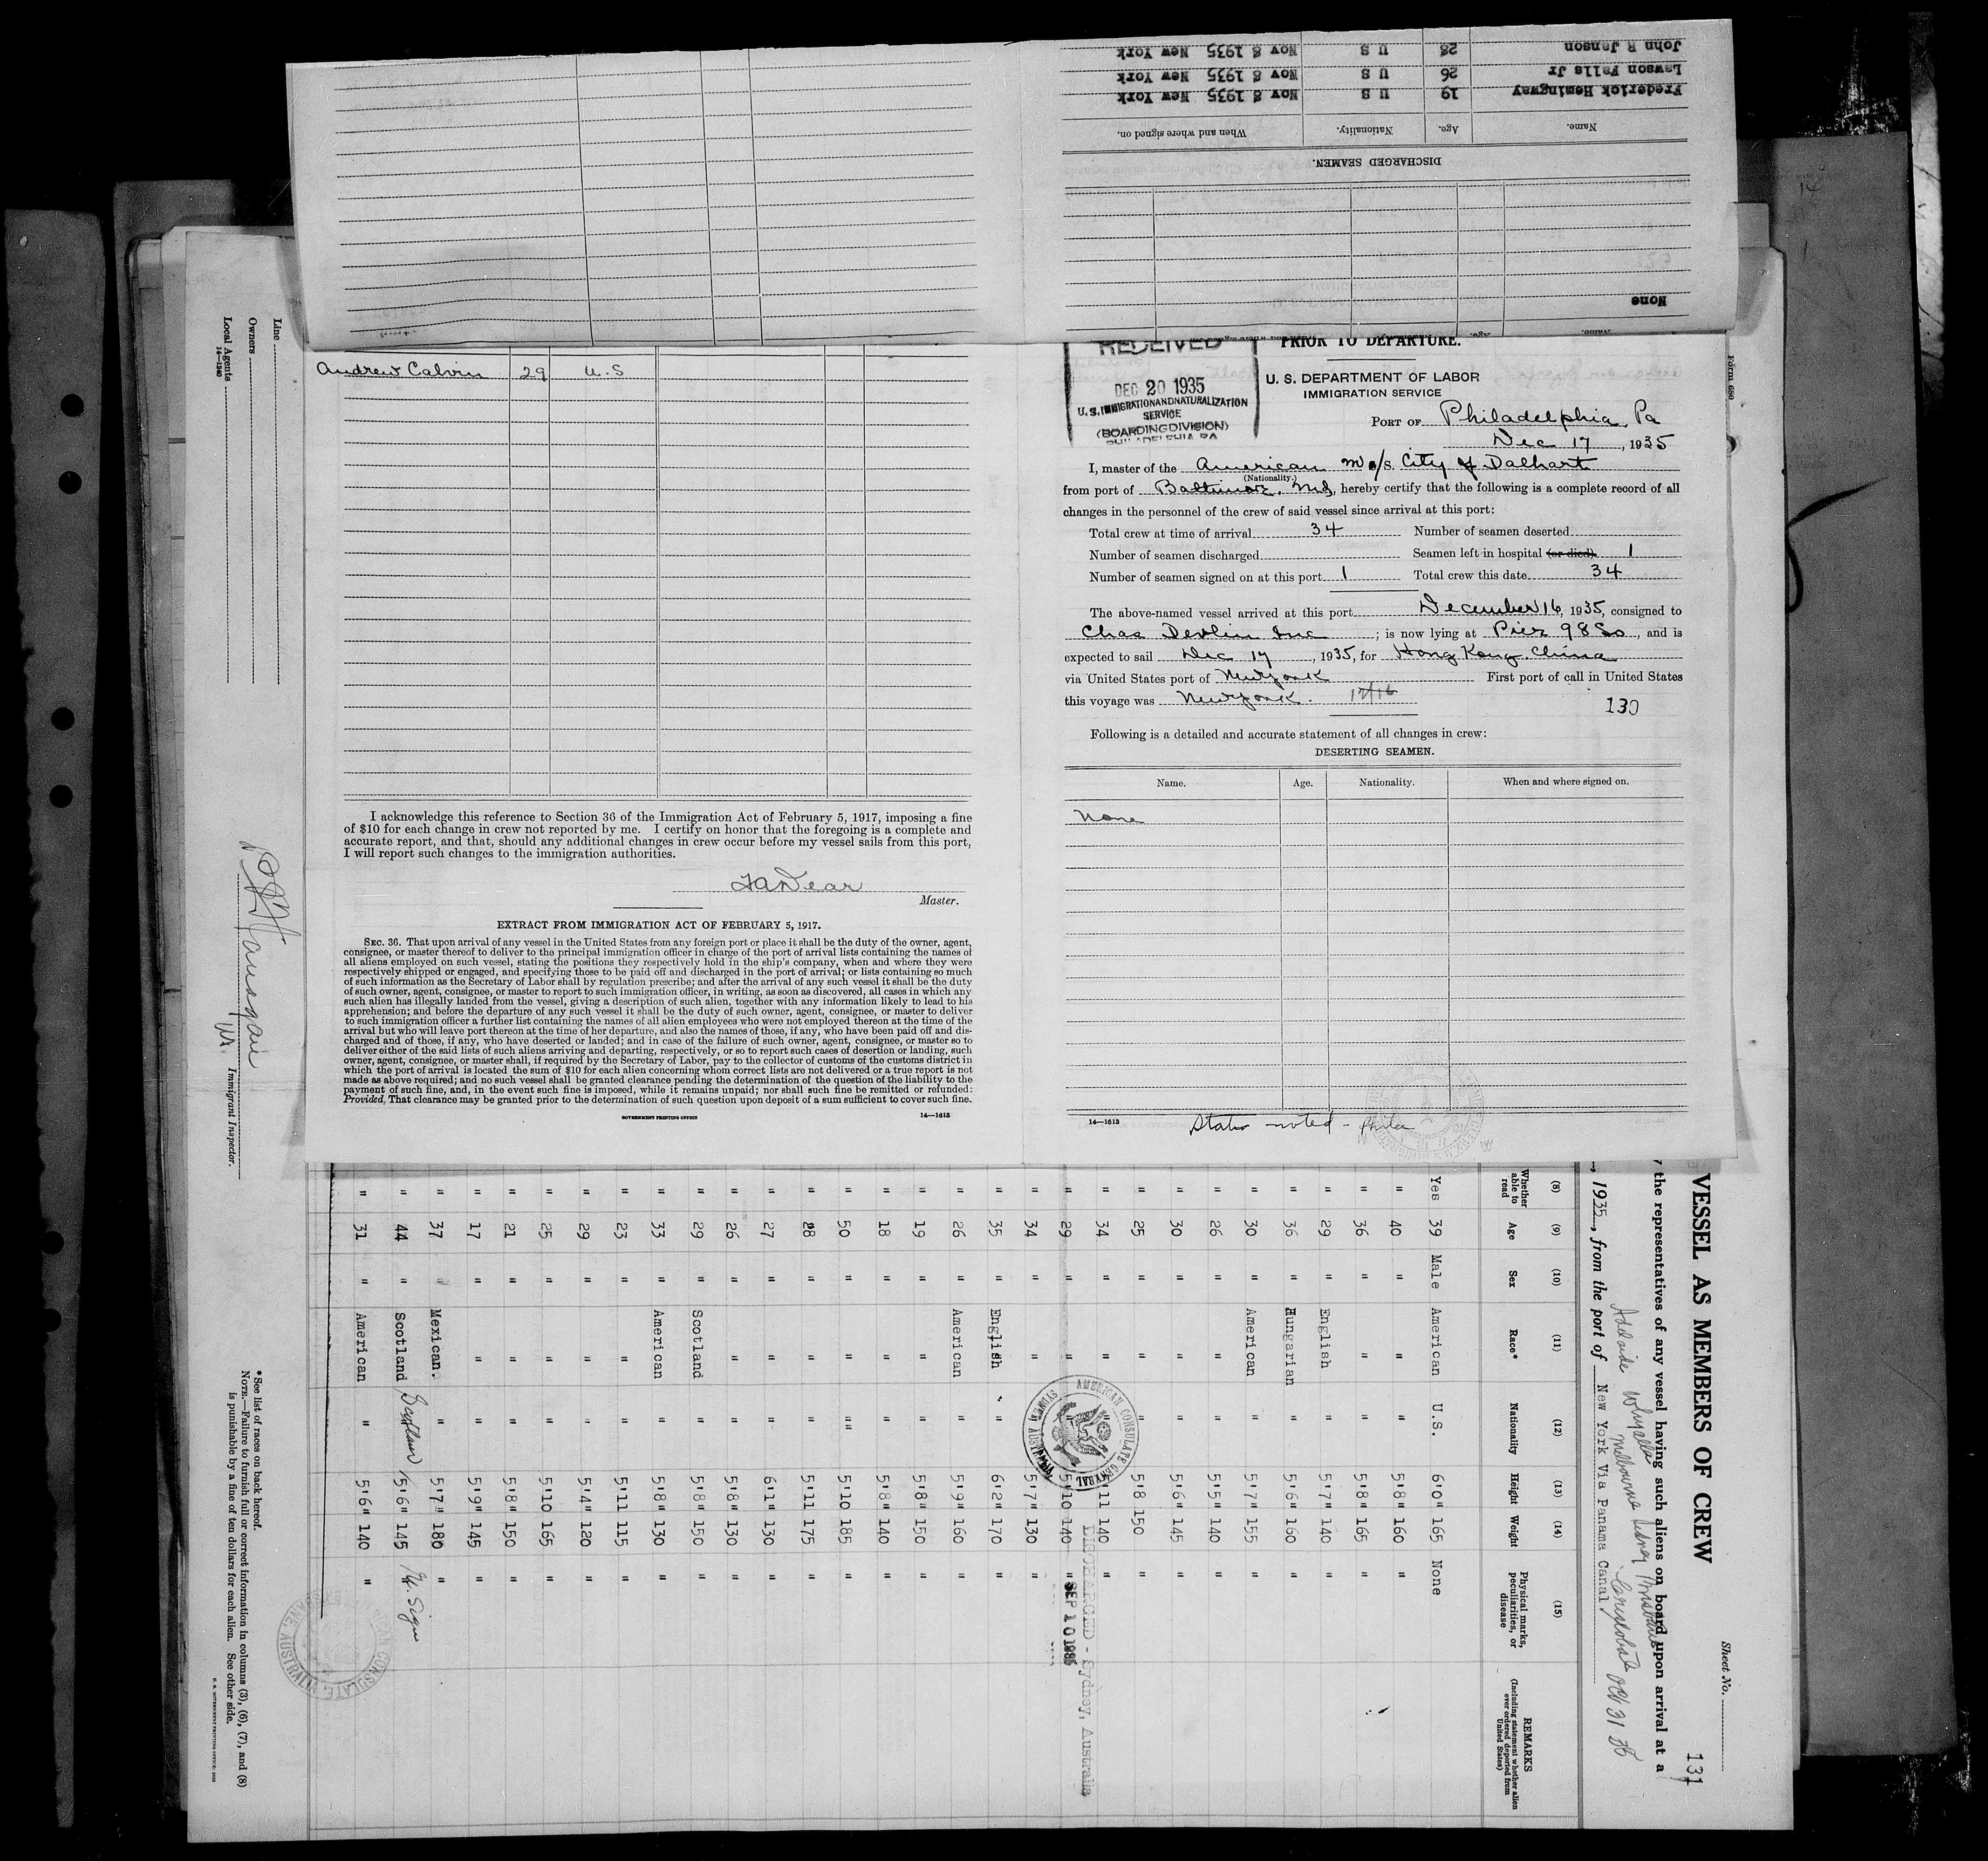 John R Janson 28 U S Nov 8 1935 New York
Lawson Falls Jr 26 U S Nov 8 1935 New York
Frederick Hemingway 19 U S Nov 8 1935 New York
Name. Age. Nationality. When and where signed on.
DISCHARGED SEAMEN.
None
Name. Age.
Andrew Calvin 29 U.S
I acknowledge this reference to Section 36 of the Immigration Act of February 5, 1917, imposing a fine
of $10 for each change in crew not reported by me. I certify on honor that the foregoing is a complete and
accurate report, and that, should any additional changes in crew occur before my vessel sails from this port,
I will report such changes to the immigration authorities.
Master.
EXTRACT FROM IMMIGRATION ACT OF FEBRUARY 5, 1917.
SEC. 36. That upon arrival of any vessel in the United States from any foreign port or place it shall be the duty of the owner, agent,
consignee, or master thereof to deliver to the principal immigration officer in charge of the port of arrival lists containing the names of
all aliens employed on such vessel, stating the positions they respectively hold in the ship's company, when and where they were
respectively shipped or engaged, and specifying those to be paid off and discharged in the port of arrival; or lists containing so much
of such information as the Secretary of Labor shall by regulation prescribe; and after the arrival of any such vessel it shall be the duty
of such owner, agent, consignee, or master to report to such immigration officer, in writing, as soon as discovered, all cases in which any
such alien has illegally landed from the vessel, giving a description of such alien, together with any information likely to lead to his
apprehension; and before the departure of any such vessel it shall be the duty of such owner, agent, consignee, or master to deliver
to such immigration officer a further list containing the names of all alien employees who were not employed thereon at the time of the
arrival but who will leave port thereon at the time of her departure, and also the names of those, if any, who have been paid off and dis-
charged and of those, if any, who have deserted or landed; and in case of the failure of such owner, agent, consignee, or master so to
deliver either of the said lists of such aliens arriving and departing, respectively, or so to report such cases of desertion or landing, such
owner, agent, consignee, or master shall, if required by the Secretary of Labor, pay to the collector of customs of the customs district in
which the port of arrival is located the sum of $10 for each alien concerning whom correct lists are not delivered or a true report is not
made as above required; and no such vessel shall be granted clearance pending the determination of the question of the liability to the
payment of such fine, and, in the event such fine is imposed, while it remains unpaid; nor shall such fine be remitted or refunded:
Provided, That clearance may be granted prior to the determination of such question upon deposit of a sum sufficient to cover such fine.
GOVERNMENT PRINTING OFFICE 14—1613
RECEIVED
DEC 20 1935
U.S. IMMIGRATION AND NATURALIZATION
SERVICE
(BOARDING DIVISION)
PHILADELPHIA PA
Form 680
PRIOR TO DEPARTURE.
U. S. DEPARTMENT OF LABOR
IMMIGRATION SERVICE
PORT OF Philadelphia Pa
Dec 17, 1935
I, master of the American M/s. City of Dalhart
(Nationality.)
from port of Baltimore, Md, hereby certify that the following is a complete record of all
changes in the personnel of the crew of said vessel since arrival at this port:
Total crew at time of arrival 34 Number of seamen deserted
Number of seamen discharged Seamen left in hospital (or died) 1
Number of seamen signed on at this port 1 Total crew this date 34
The above-named vessel arrived at this port December 16, 1935, consigned to
Chas Devlin Inc; is now lying at Pier 98 So, and is
expected to sail Dec 17, 1935, for Hong Kong. China
via United States port of New York First port of call in United States
this voyage was New York. 12/16
130
Following is a detailed and accurate statement of all changes in crew:
DESERTING SEAMEN.
Name. Age. Nationality. When and where signed on.
None
14—1613
noted - Phila
Line
Owners
Local Agents
14—1240
Immigrant Inspector.
*See list of races on back hereof.
NOTE.—Failure to furnish full or correct information in columns (3), (6), (7), and (8)
is punishable by a fine of ten dollars for each alien. See other side.
Sheet No.
131
VESSEL AS MEMBERS OF CREW
the representatives of any vessel having such aliens on board upon arrival at a
Adelaide Whyalla Melbourne Sydney Brisbane Cristobal Oct 31 35
, 1935, from the port of New York Via Panama Canal
(8) (9) (10) (11) (12) (13) (14) (15)
Whether able to read Age Sex Race* Nationality Height Weight Physical marks, peculiarities, or disease REMARKS
(Including statement whether alien ever ordered deported from United States)
Yes 39 Male American U.S. 6'0" 165 None
" 40 " " " 5'8" 160 "
" 36 " " " 5'8" 165 "
" 29 " English " 5'7" 140 "
" 36 " Hungarian " 5'6" 160 "
" 30 " American " 5'7" 155 "
" 26 " " " 5'5" 140 "
" 30 " " " 5'6" 145 "
" 25 " " " 5'8 150 "
" 34 " " 11 140 "
" 29 " " 5'10 140 "
DISCHARGED - Sydney, Australia
SEP 10 1935
" 34 " " 5'7" 130 "
" 35 " English " 6'2" 170 "
" 26 " American " 5'9" 160 "
" 19 " " " 5'8" 150 "
" 18 " " " 5'8" 140 "
" 50 " " " 5'10 185 "
" 28 " " " 5'11 175 "
" 27 " " " 6'1" 130 "
" 26 " " " 5'8" 130 "
" 29 " Scotland " 5'8" 150 "
" 33 " American " 5'8" 130 "
" 23 " " " 5'11 115 "
" 29 " " " 5'4" 120 "
" 25 " " " 5'10 165 "
" 21 " " " 5'8" 150 "
" 17 " " " 5'9" 145 "
" 37 " Mexican. " 5'7" 180 "
" 44 " Scotland 5'6" 145
" 31 " American " 5'6" 140 "
AMERICAN CONSULATE GENERAL
SYDNEY AUSTRALIA